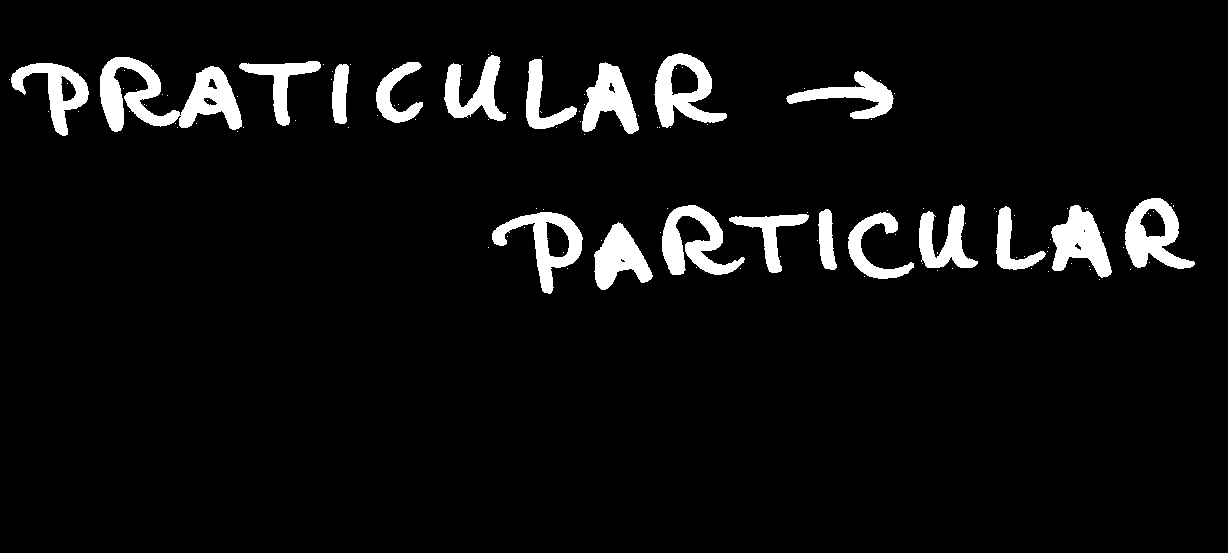 PRATICULAR →
PARTICULAR